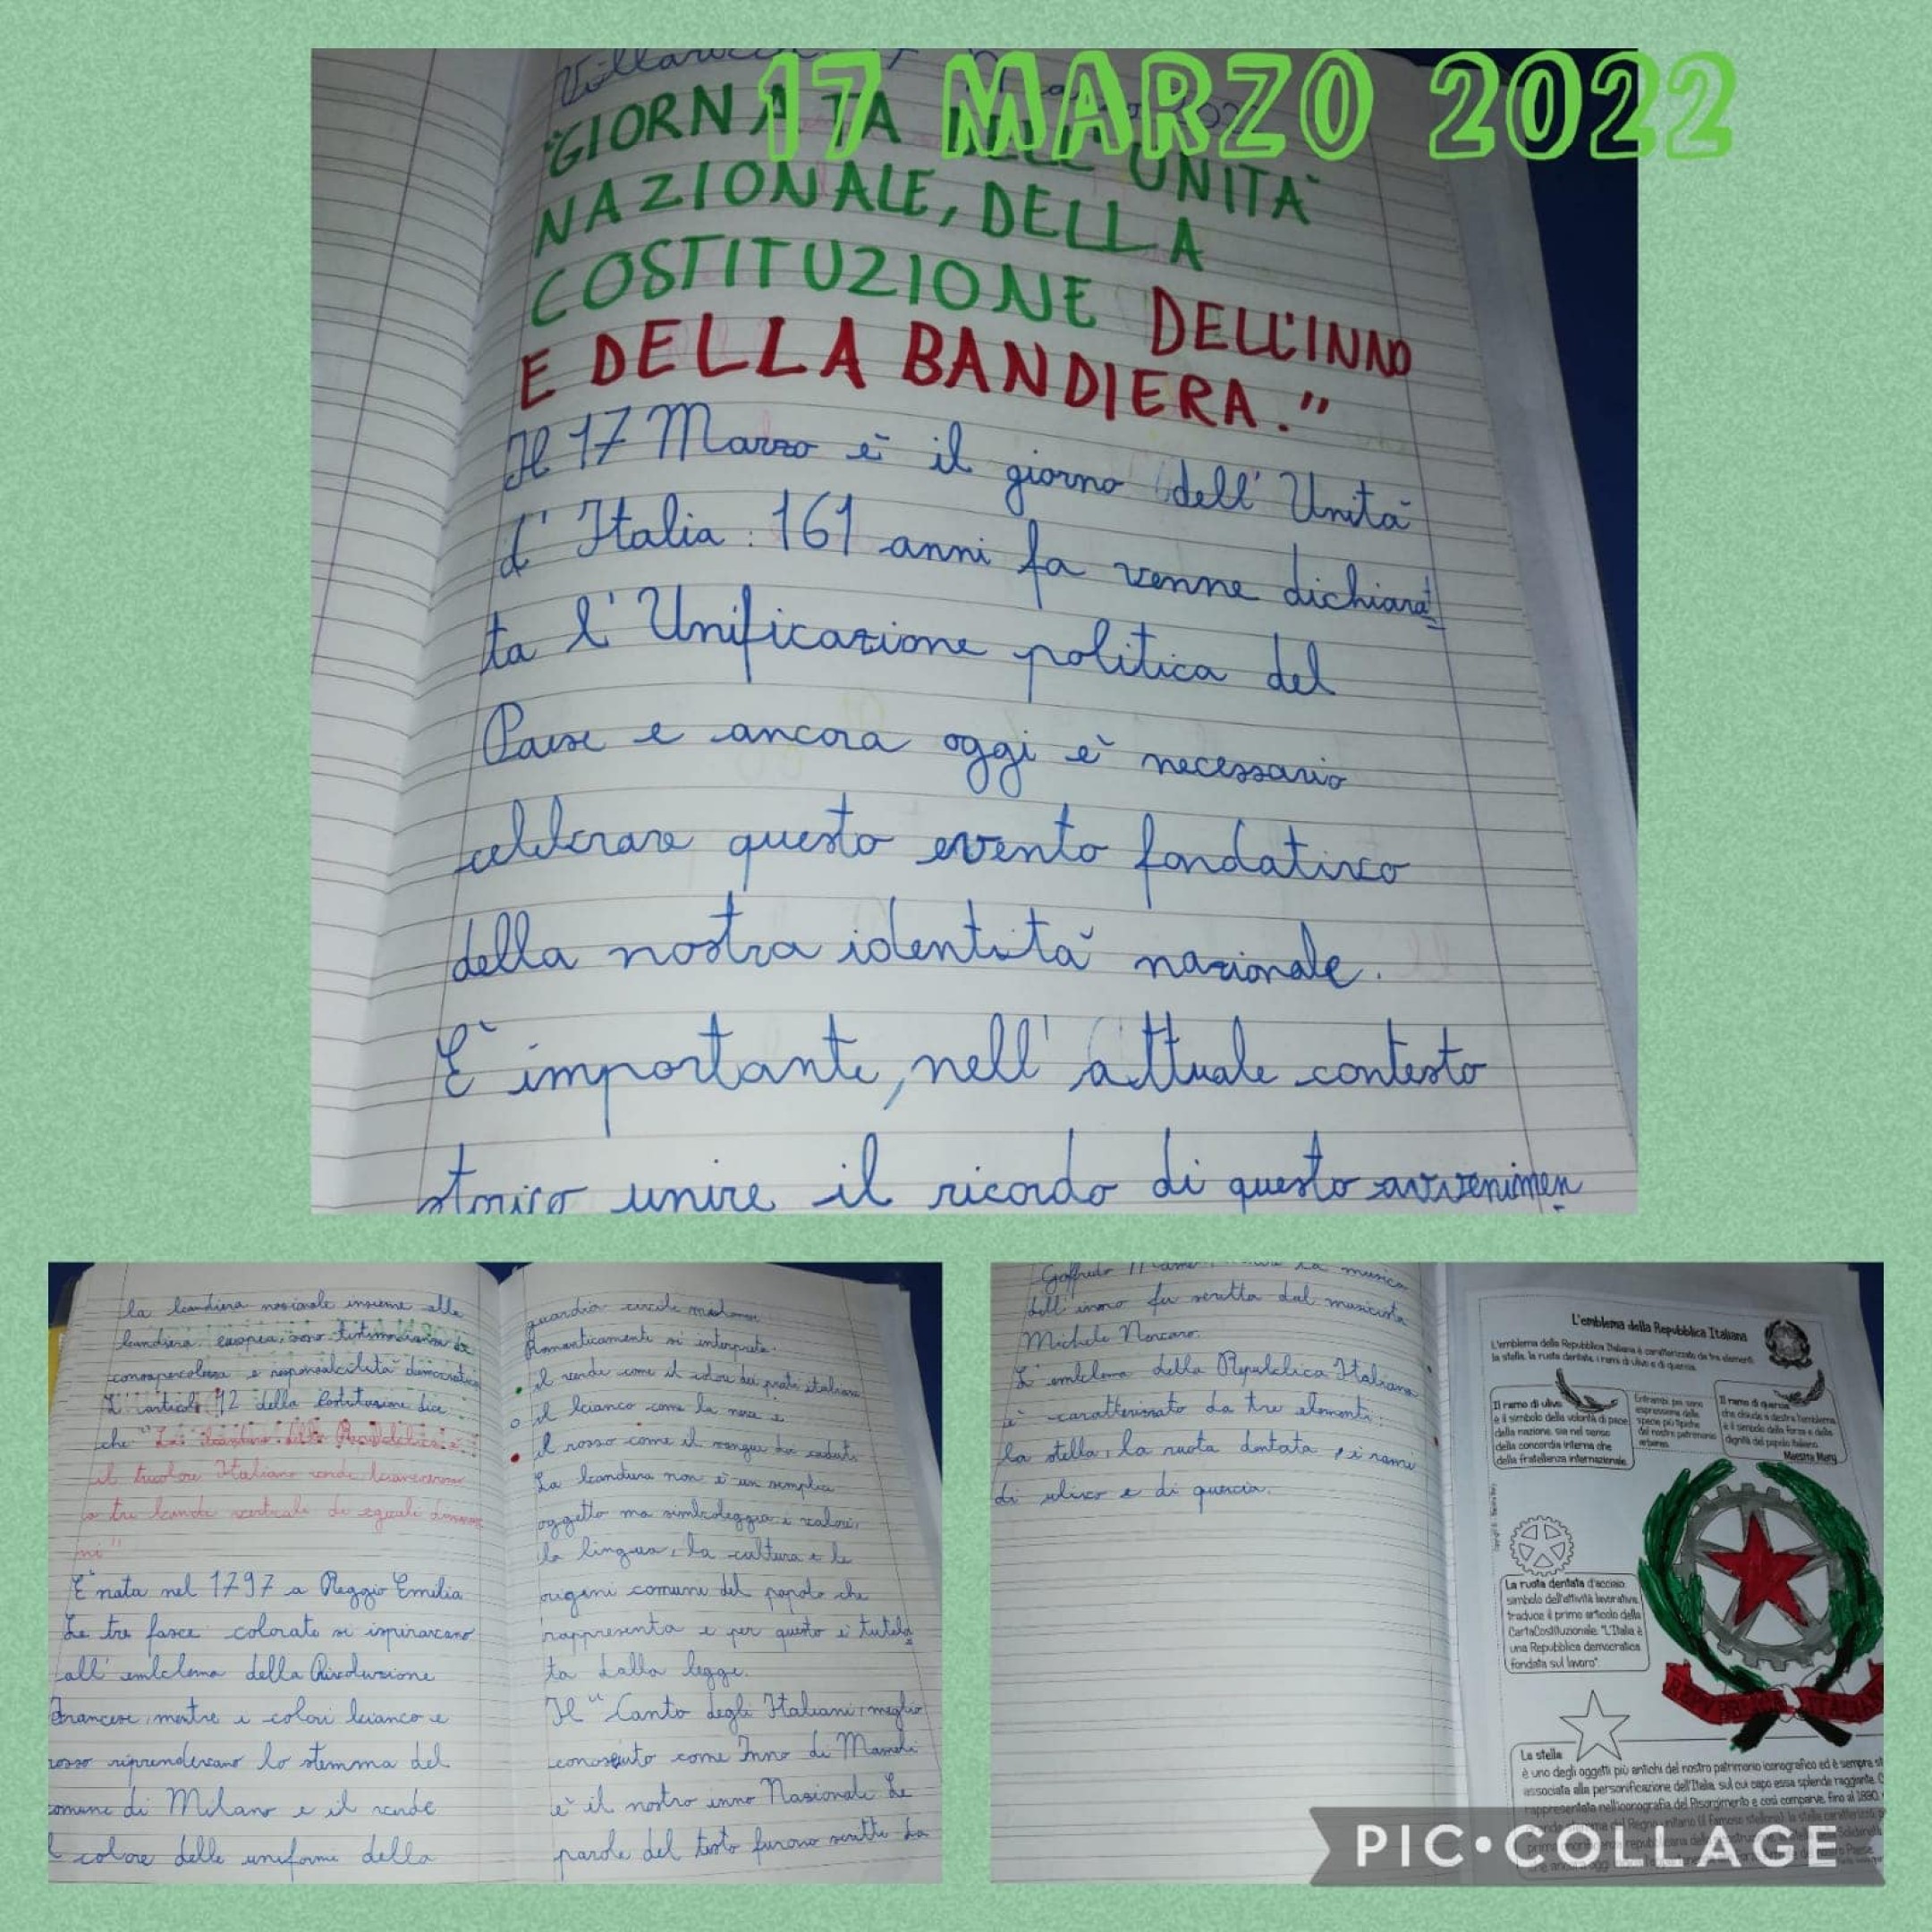 17 MARZO 2022
"GIORNATA DELL'UNITÀ
NAZIONALE, DELLA
COSTITUZIONE DELL'INNO
E DELLA BANDIERA."
Il 17 Marzo è il giorno dell'Unità
d'Italia: 161 anni fa venne dichiara
ta l'Unificazione politica del
Paese e ancora oggi è necessario
celebrare questo evento fondativo
della nostra identità nazionale.
È importante, nell'attuale contesto
storico unire il ricordo di questo avvenimen
la bandiera nazionale insieme alla
bandiera europea, sono testimonianza di
consapevolezza e responsabilità democratica
L'articolo 12 della Costituzione dice
che "La bandiera della Repubblica è
il tricolore Italiano verde bianco e ros
so tre bande verticali di eguali dimensio
ni"
È nata nel 1797 a Reggio Emilia
Le tre fasce colorate si ispiravano
all'emblema della Rivoluzione
Francese, mentre i colori bianco e
rosso riprendevano lo stemma del
comune di Milano e il verde
il colore delle uniforme della
guardia civile milanese
Romanticamente si interpreta:
il verde come il colore dei prati italiani
il bianco come la neve e
il rosso come il sangue dei caduti
La bandiera non è un semplice
oggetto ma simboleggia i valori,
la lingua, la cultura e le
origini comuni del popolo che
rappresenta e per questo è tutela
ta dalla legge.
Il "Canto degli Italiani, meglio
conosciuto come Inno di Mameli
è il nostro inno Nazionale Le
parole del testo furono scritte da
Goffredo la musica
dell'inno fu scritta dal musicista
Michele Novaro.
L'emblema della Repubblica Italiana
è caratterizzato da tre elementi:
la stella, la ruota dentata, i rami
di ulivo e di quercia.
L'emblema della Repubblica Italiana
L'emblema della Repubblica Italiana è caratterizzato da tre elementi:
la stella, la ruota dentata, i rami di ulivo e di quercia.
Il ramo di ulivo
è il simbolo della volontà di pace
della nazione, sia nel senso
della concordia interna che
della fratellanza internazionale.
Entrambi poi sono
espressione delle
specie più tipiche
del nostro patrimonio
arboreo.
Il ramo di quercia
che chiude a destra l'emblema
è il simbolo della forza e della
dignità del popolo italiano.
Maestra Mary
La ruota dentata d'acciaio
simbolo dell'attività lavorativa,
traduce il primo articolo della
Carta Costituzionale: "L'Italia è
una Repubblica democratica
fondata sul lavoro".
La stella
è uno degli oggetti più antichi del nostro patrimonio iconografico ed è sempre st
associata alla personificazione dell'Italia, sul cui capo essa splende raggiante. C
rappresentata nell'iconografia del Risorgimento e così comparve, fino al 1890,
PIC•COLLAGE